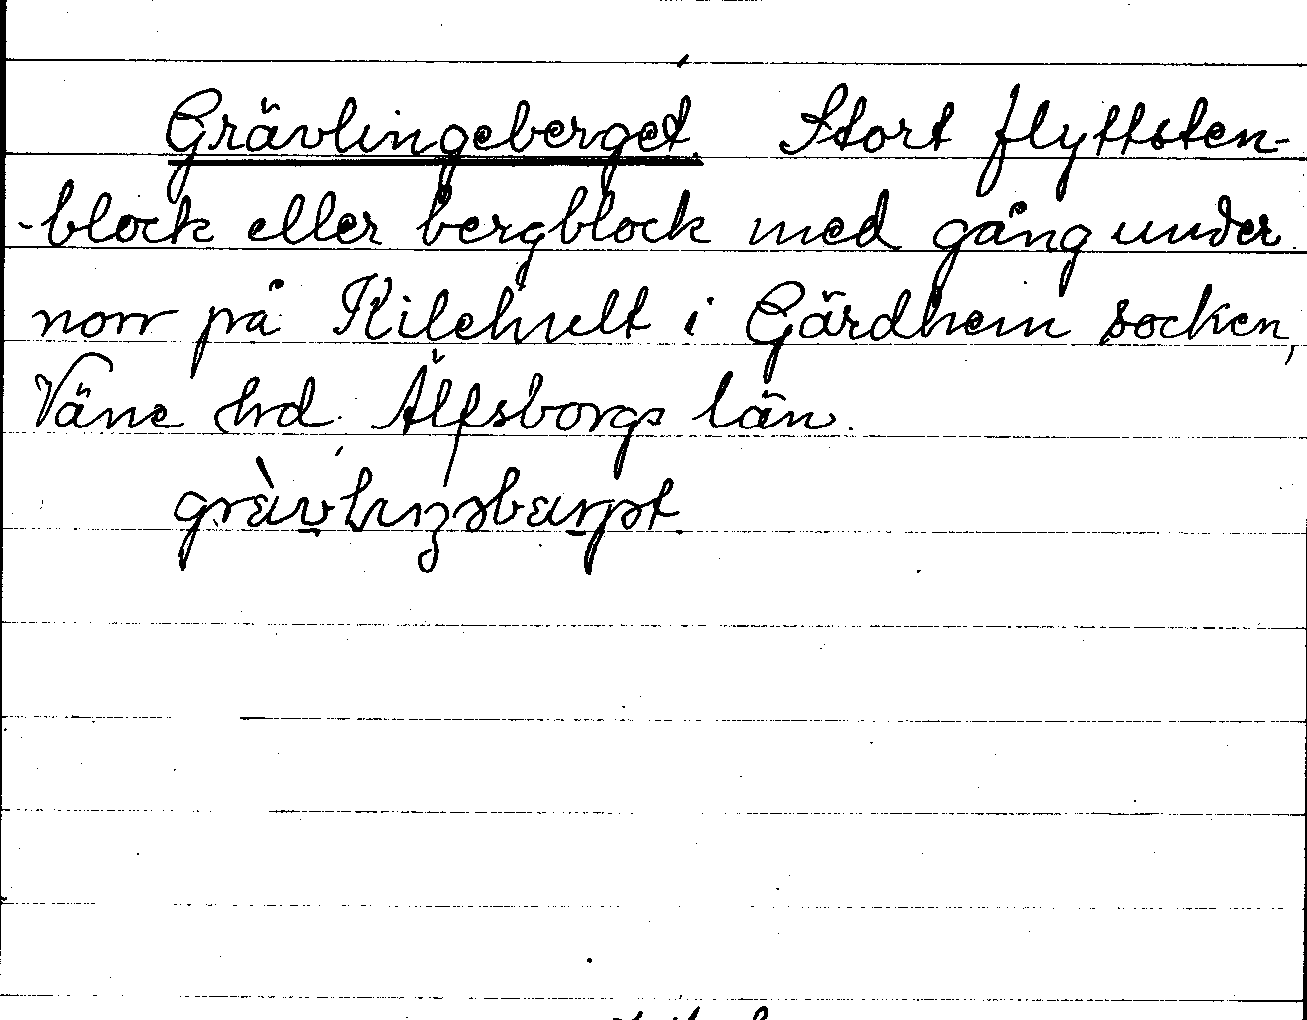 Grävlingeberget. Stort flyttsten-
-block eller bergblock med gång under
norr på Kilehult i Gärdhem socken,
Väne hrd. Älfsborgs län.